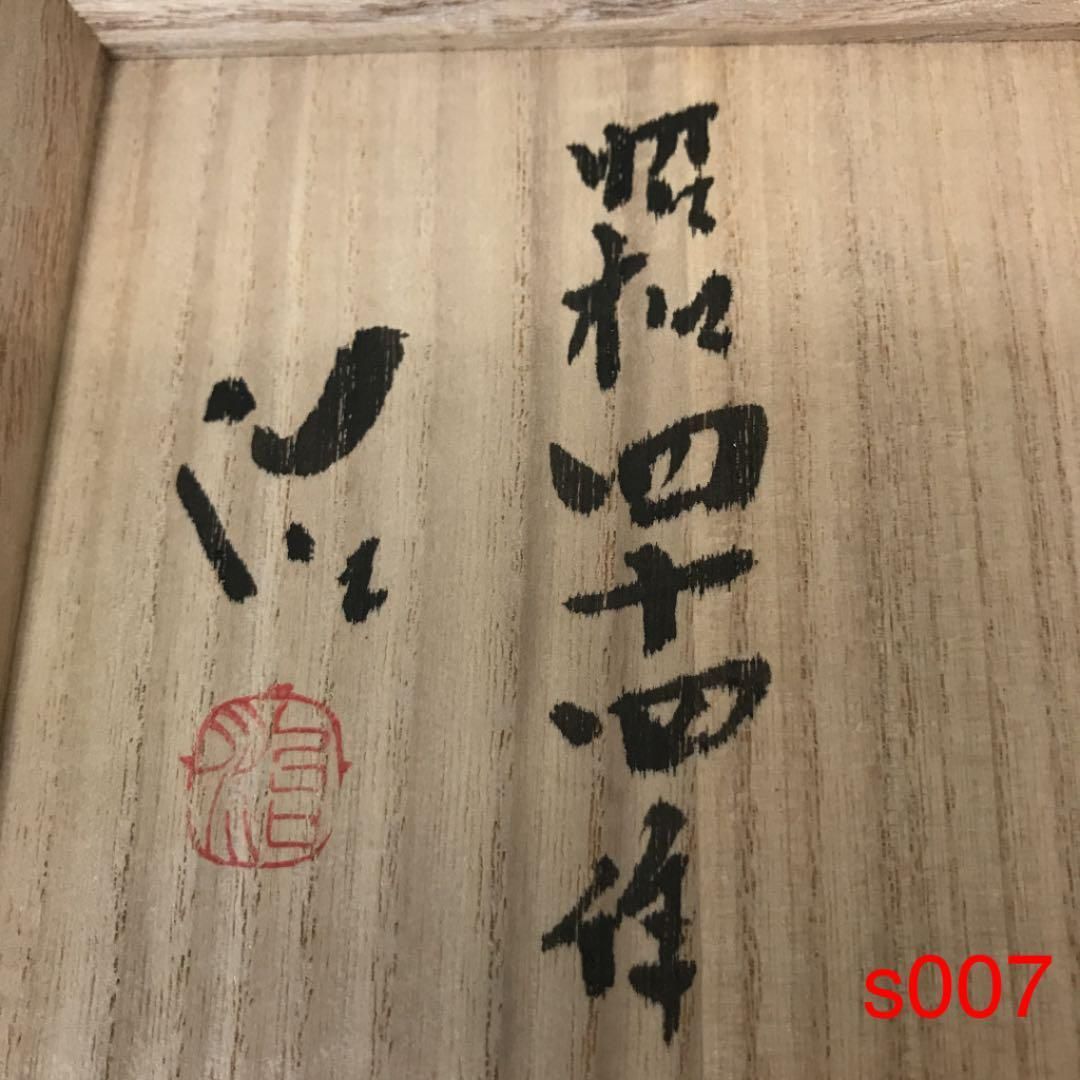 昭和四十四年
s007